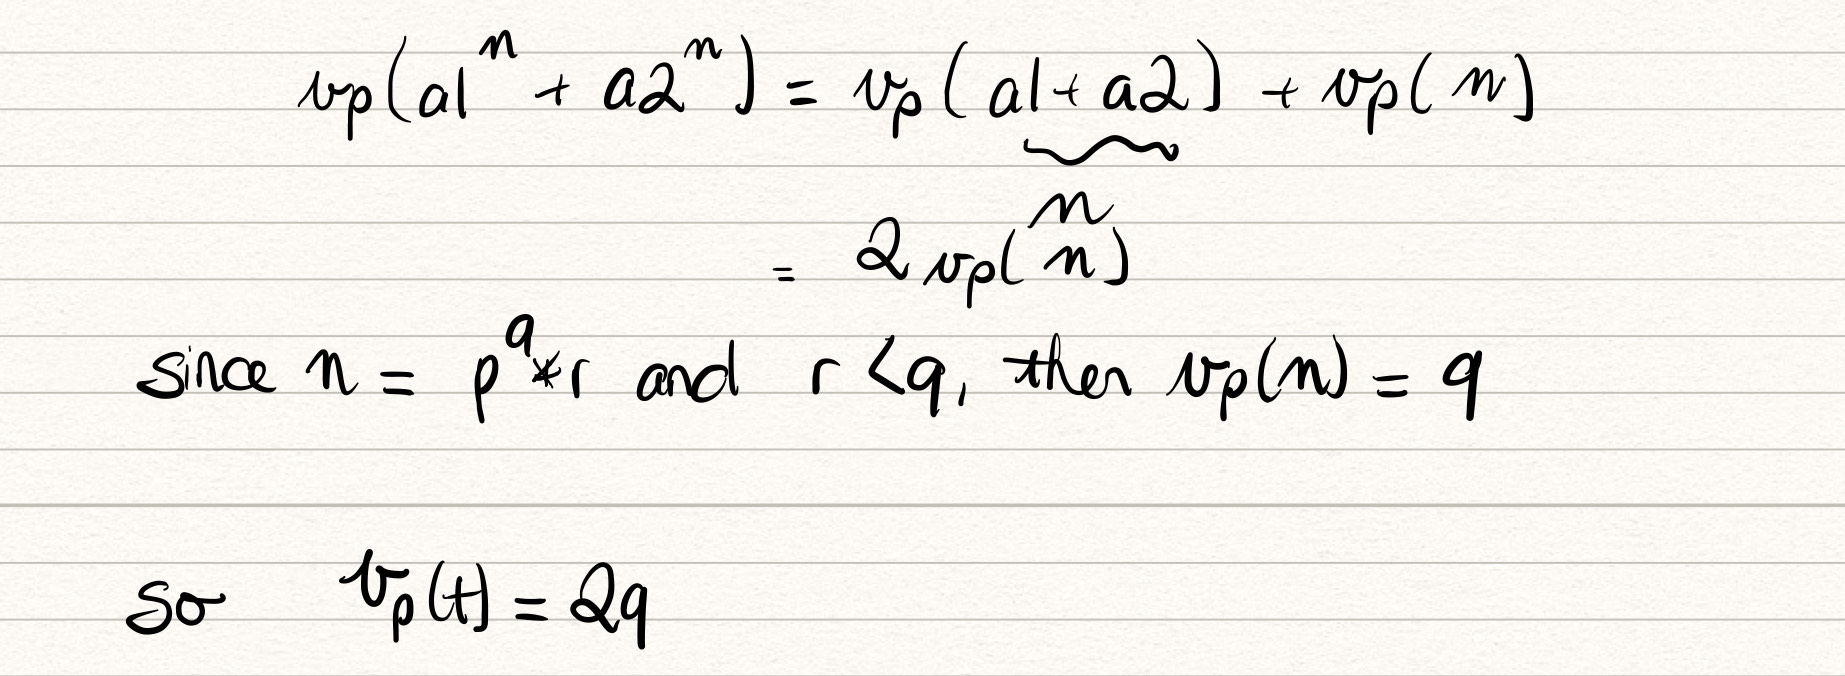 vp(a1^n + a2^n) = vp(a1 + a2) + vp(n)
n
= 2 vp(n)
since n = p^q * r and r < q, then vp(n) = q
so vp(t) = 2q